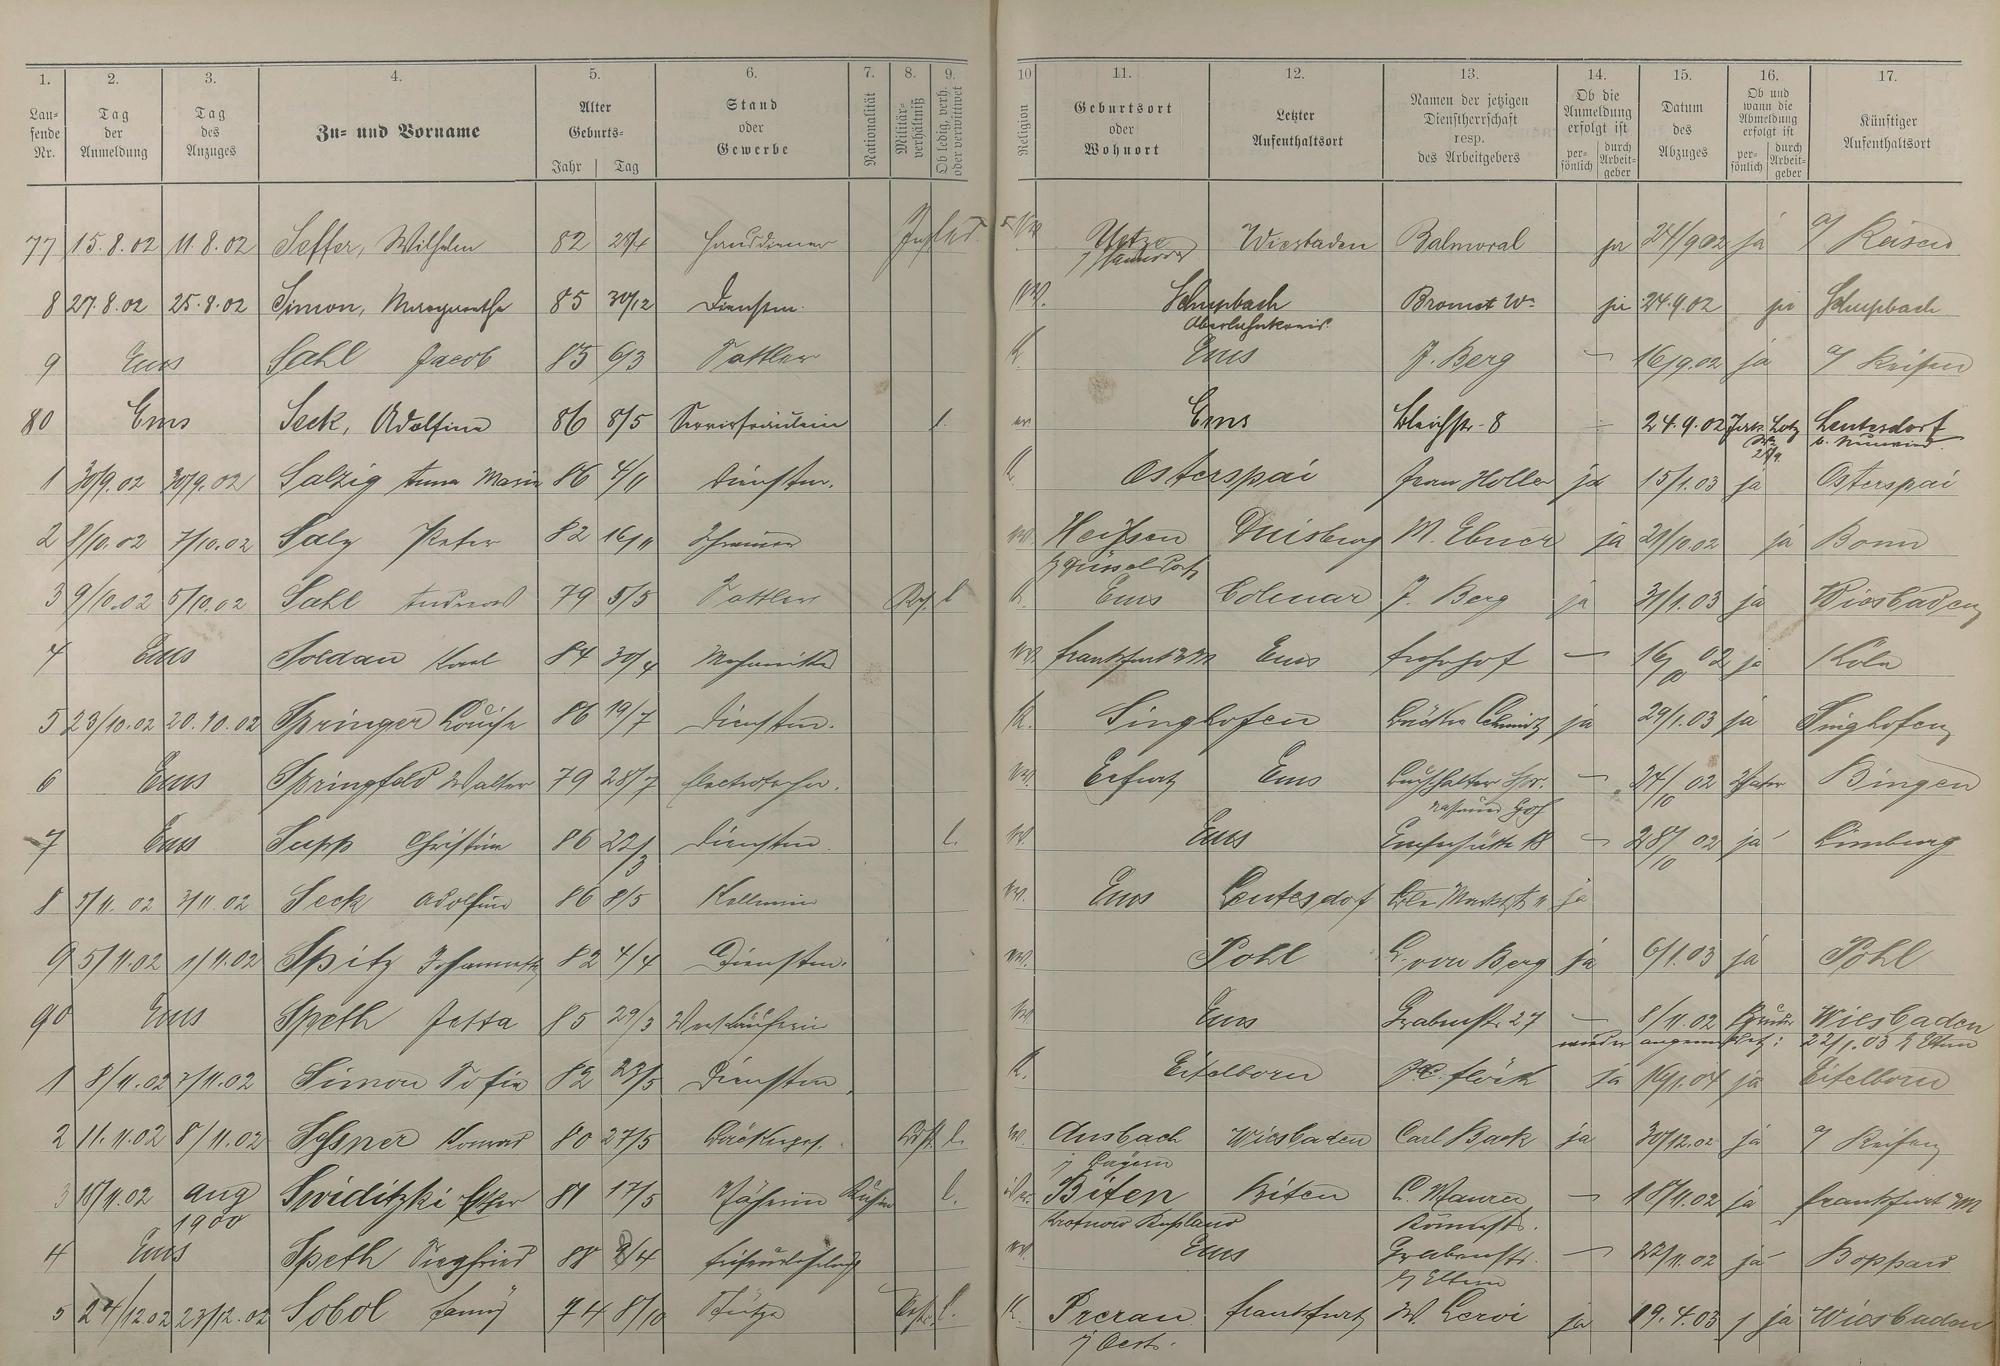 1. 2. 3. 4. 5. 6. 7. 8. 9. 10 11. 12. 13. 14. 15. 16. 17.
Lau-
fende
Nr.
Tag
der
Anmeldung
Tag
des
Anzuges
Zu- und Vorname
Alter
Geburts-
Jahr Tag
Stand
oder
Gewerbe
Nationalität
Militär-
verhältniß
Ob ledig, verh.
oder verwittwet
Religion
Geburtsort
oder
Wohnort
Letzter
Aufenthaltsort
Namen der jetzigen
Dienstherrschaft
resp.
des Arbeitgebers
Ob die
Anmeldung
erfolgt ist
per-
sönlich
durch
Arbeit-
geber
Datum
des
Abzuges
Ob und
wann die
Abmeldung
erfolgt ist
per-
sönlich
durch
Arbeit-
geber
Künftiger
Aufenthaltsort
77 15.8.02 11.8.02 Seffer, Wilhelm 82 Hausdiener Wiesbaden Balmoral ja 24/9 02 ja a/ Reisen
8 27.8.02 25.8.02 Simon, Margarethe 85 30/12 Dienstm. Schupbach ja 24.9.02 ja Schupbach
Oberlahnkreis
9 Ems Sahl Jacob 85 6/3 Sattler K. Ems J. Berg - 16/9.02 ja a/ Reisen
80 Ems Seck, Adolfine 86 8/5 Servierfräulein l. ev. Ems Bleichstr. 8 - 24.9.02 Leutesdorf
b. Neuwied
1 30/9.02 30/9.02 Salzig Anna Maria 86 4/11 Dienstm. K. Osterspai Frau Holler ja 15/1.03 ja Osterspai
2 8/10.02 7/10.02 Salz Peter 82 16/11 Schreiner Duisburg M. Ebner ja 29/10.02 ja Bonn
b/ Düsseldorf
3 9/10.02 5/10.02 Sahl Andreas 79 5/5 Sattler l K. Ems Colmar J. Berg ja 31/1.03 ja Wiesbaden
4 Ems Soldan Karl 84 30/4 Mechaniker Frankfurt a/M Ems Frohhof - 16/10 02 ja Köln
5 23/10.02 20.10.02 Springer Louise 86 19/7 Dienstm. K. Singhofen Schmidt ja 29/1.03 ja Singhofen
6 Ems Springfeld Walter 79 28/7 Electrotechn. ev. Erfurt Ems Buchhalter - 24/10 02 Vater Bingen
7 Ems Supp Christine 86 22/3 Dienstm. l. ev. Ems Emserhütte 18 - 28/10 02 ja Limburg
8 5/11.02 3/11.02 Seck Adolfine 86 8/5 Kellnerin ev. Ems Leutesdorf ja
9 5/11.02 1/11.02 Spitz Johannette 82 4/4 Dienstm. ev. Pohl L. von Berg ja 6/1.03 ja Pohl
90 Ems Speth Jetta 85 29/3 Verkäuferin ev. Ems Grabenstr. 27 - 8/11.02 Bruder Wiesbaden
wieder angemeldet: 22/1.03 Eltern
1 8/11.02 7/11.02 Simon Sofie 82 23/5 Dienstm. K. Eitelborn Flöck ja 19/1.04 ja Eitelborn
2 11.11.02 8/11.02 Konrad 80 27/5 Bäckerges. l. ev. Ansbach Wiesbaden Carl Back ja 30/12.02 ja a/ Reisen
i/ Bayern
3 18/11.02 Aug Swiditzki 81 17/5 Näherin l. Biten Biten C. Maurer - 18/11.02 ja Frankfurt a/M
1900 Rußland Römerstr.
4 Ems Speth Siegfried 88 Friseurlehrling ev. Ems Grabenstr. - 22/11.02 ja Boppard
b/ Eltern
5 24/12.02 23/12.02 Sobol Fanny 74 8/10 Stütze l. K. Prerau Frankfurt W. Leroi ja 19.4.03 ja Wiesbaden
i/ Oest.